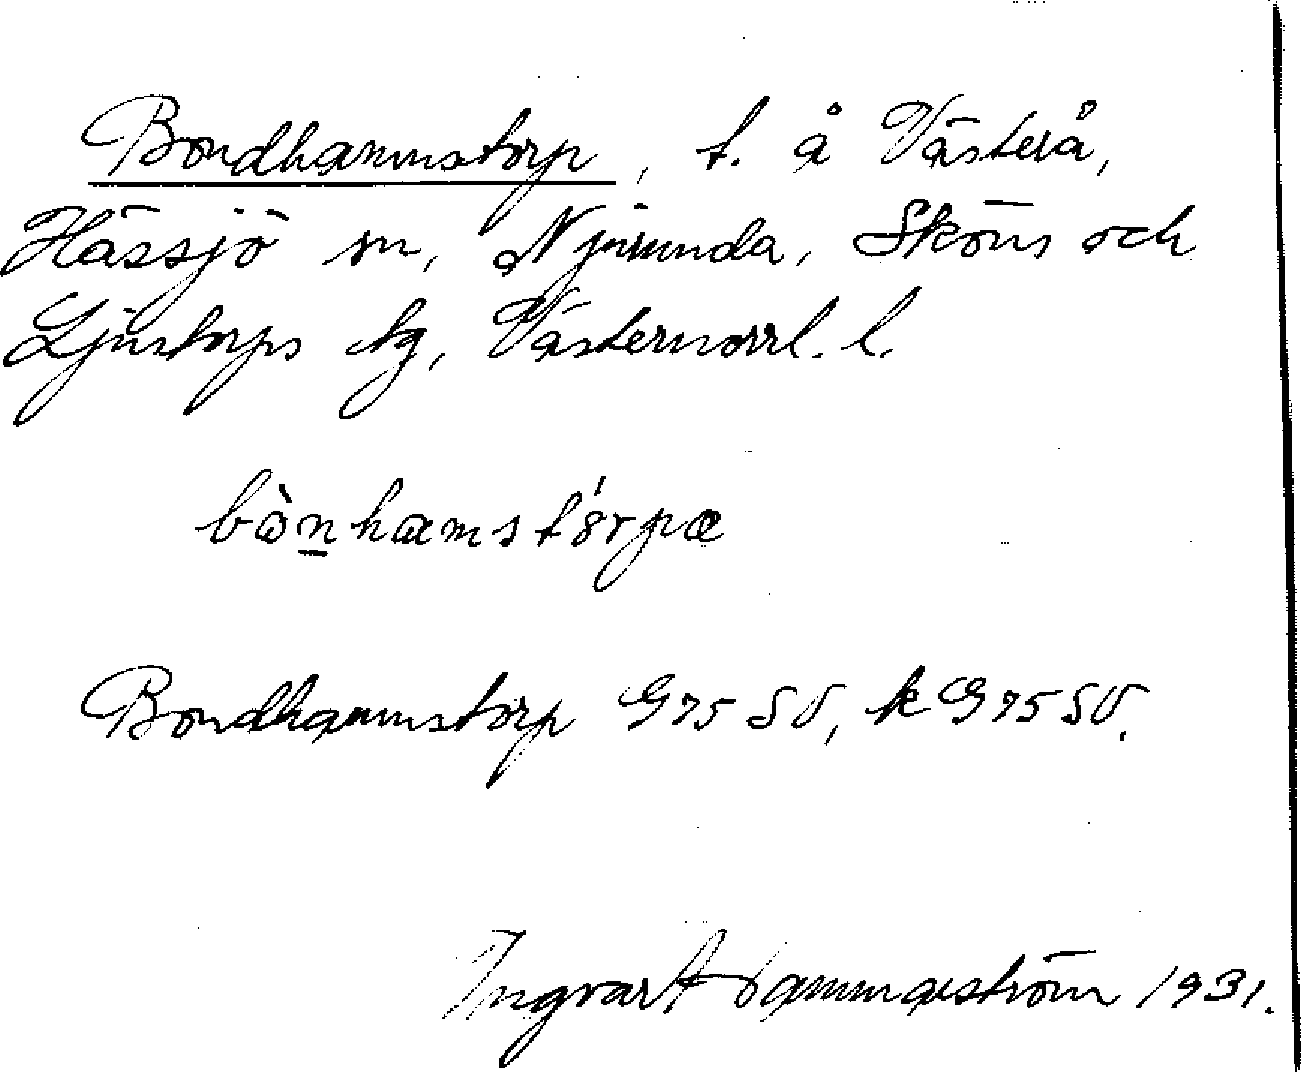 Bondhammstorp, t. å Västerå,
Hässjö sn, Njurunda, Sköns och
Ljustorps tg, Västernorrl. l.
bònhamstórpe
Bondhammstorp G 75 SV, k G 75 SV.
Ingvar Hammarström 1931.